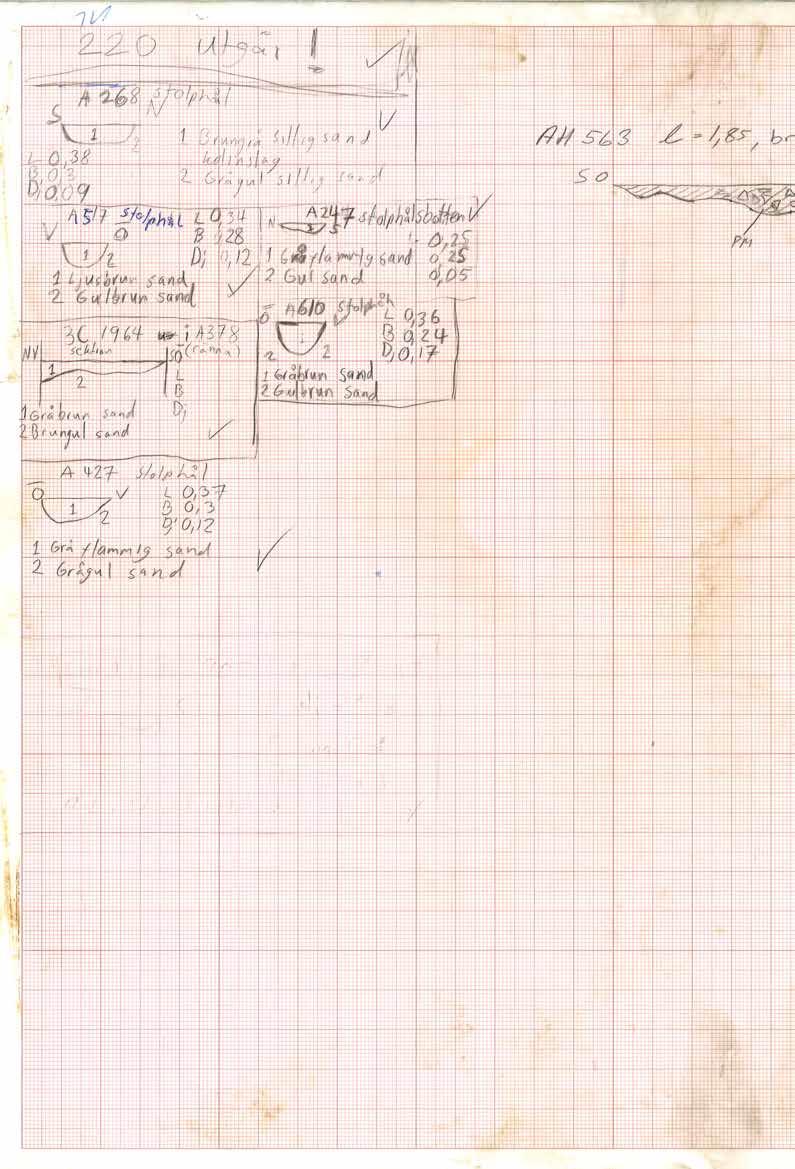 220 utgår!
A 268 stolphål
S N
1 2
1 Brungrå siltig sand
kolinslag
2 Grågul siltig sand
L 0,38
B 0,3
Dj 0,09
A517 stolphål
Ö
1 2
L 0,34
B 0,28
Dj 0,12
1 Ljusbrun sand
2 Gulbrun sand
A247 stolphålsbotten
N S
0,25
0,25
0,05
1 Gråflammig sand
2 Gul sand
3C 1964 i A378
sektion (ränna)
NV SO
1
2
L
B
Dj
1 Gråbrun sand
2 Brungul sand
A610 stolphål
Ö
1
2 2
L 0,36
B 0,24
Dj 0,17
1 Gråbrun sand
2 Gulbrun sand
A 427 stolphål
Ö V
1 2
L 0,37
B 0,3
Dj 0,12
1 Grå flammig sand
2 Grågul sand
AH 563 l = 1,85, br
SO
PM